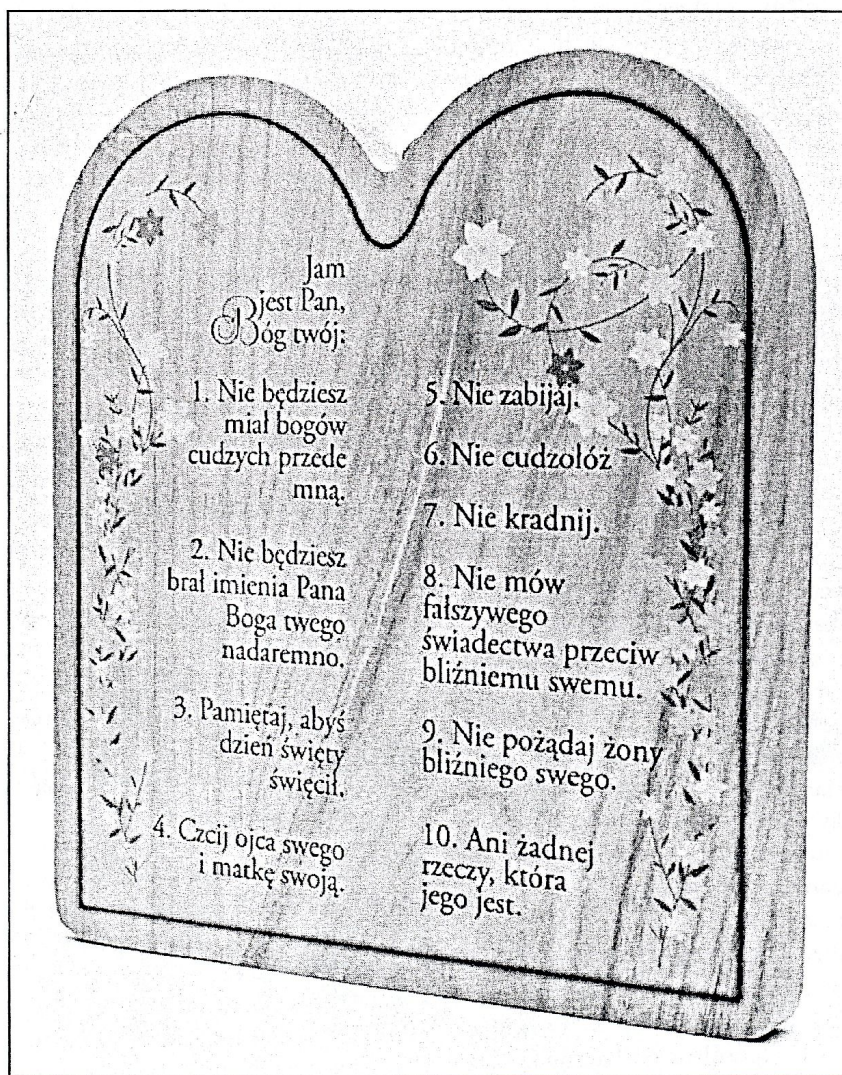 Jam
jest Pan,
Bóg twój:
1. Nie będziesz
miał bogów
cudzych przede
mną.
2. Nie będziesz
brał imienia Pana
Boga twego
nadaremno.
3. Pamiętaj, abyś
dzień święty
święcił.
4. Czcij ojca swego
i matkę swoją.
5. Nie zabijaj.
6. Nie cudzołóż
7. Nie kradnij.
8. Nie mów
fałszywego
świadectwa przeciw
bliźniemu swemu.
9. Nie pożądaj żony
bliźniego swego.
10. Ani żadnej
rzeczy, która
jego jest.